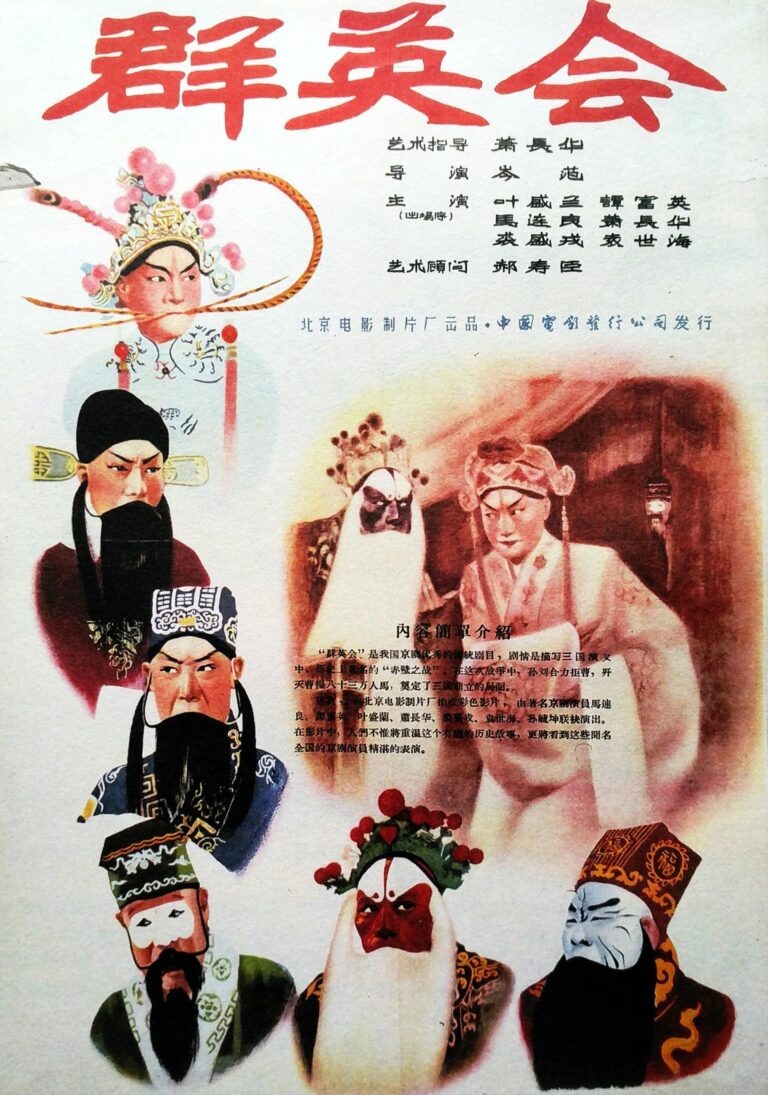 群英会
艺术指导 萧長华
导演 岑范
主演 叶盛兰 譚富英
(出場序) 馬连良 萧長华
裘盛戎 袁世海
艺术顧问 郝寿臣
北京电影制片厂出品·中國電影發行公司发行
內容簡單介紹
“群英会”是我国京剧优秀的傳統剧目，剧情是描写三国演义
中，历史上有名的“赤壁之战”。在这次战爭中，孙刘合力拒曹，歼
灭曹操八十三万人馬，奠定了三国鼎立的局面。
由北京电影制片厂拍成彩色影片，由著名京剧演員馬連
良、譚富英、叶盛蘭、蕭長华、裘盛戎、袁世海、孙毓坤联袂演出。
在影片中，人們不惟將重温这个有趣的历史故事，更將看到这些聞名
全国的京剧演員精湛的表演。
福